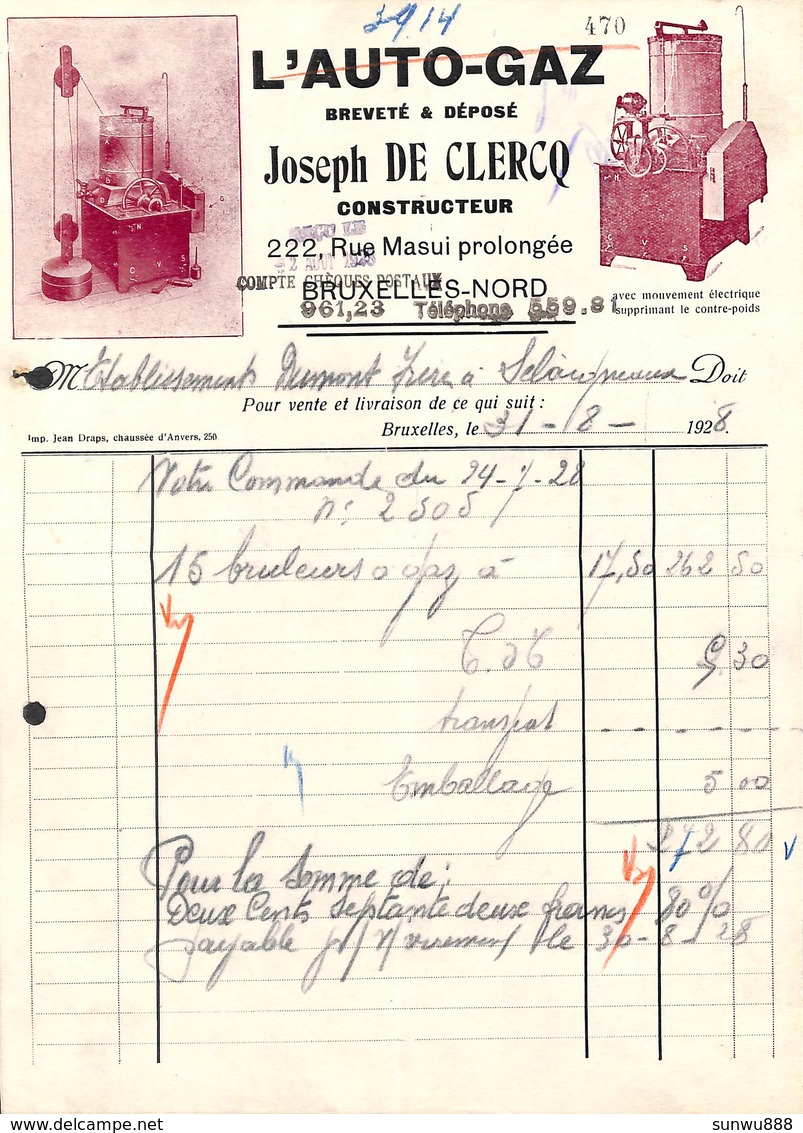 3914
470
L'AUTO-GAZ
BREVETÉ & DÉPOSÉ
Joseph DE CLERCQ
CONSTRUCTEUR
222, Rue Masui prolongée
REÇU LE
2 AOUT 1928
COMPTE CHÈQUES POSTAUX
BRUXELLES-NORD
961,23 Téléphone 559.81
avec mouvement électrique
supprimant le contre-poids
M Etablissements Dumont Frère à Doit
Pour vente et livraison de ce qui suit :
Bruxelles, le 31-8- 1928.
Imp. Jean Draps, chaussée d'Anvers, 250
Votre Commande du 24-7-28
N° 2505
15 bruleurs a gaz à 17,50 262 50
T. de T 5.30
transport - - - - - -
Emballage 5 00
272 80
Pour la somme de :
Deux Cents Septante deux francs 80 %
payable virement le 30-8-28
sunwu888